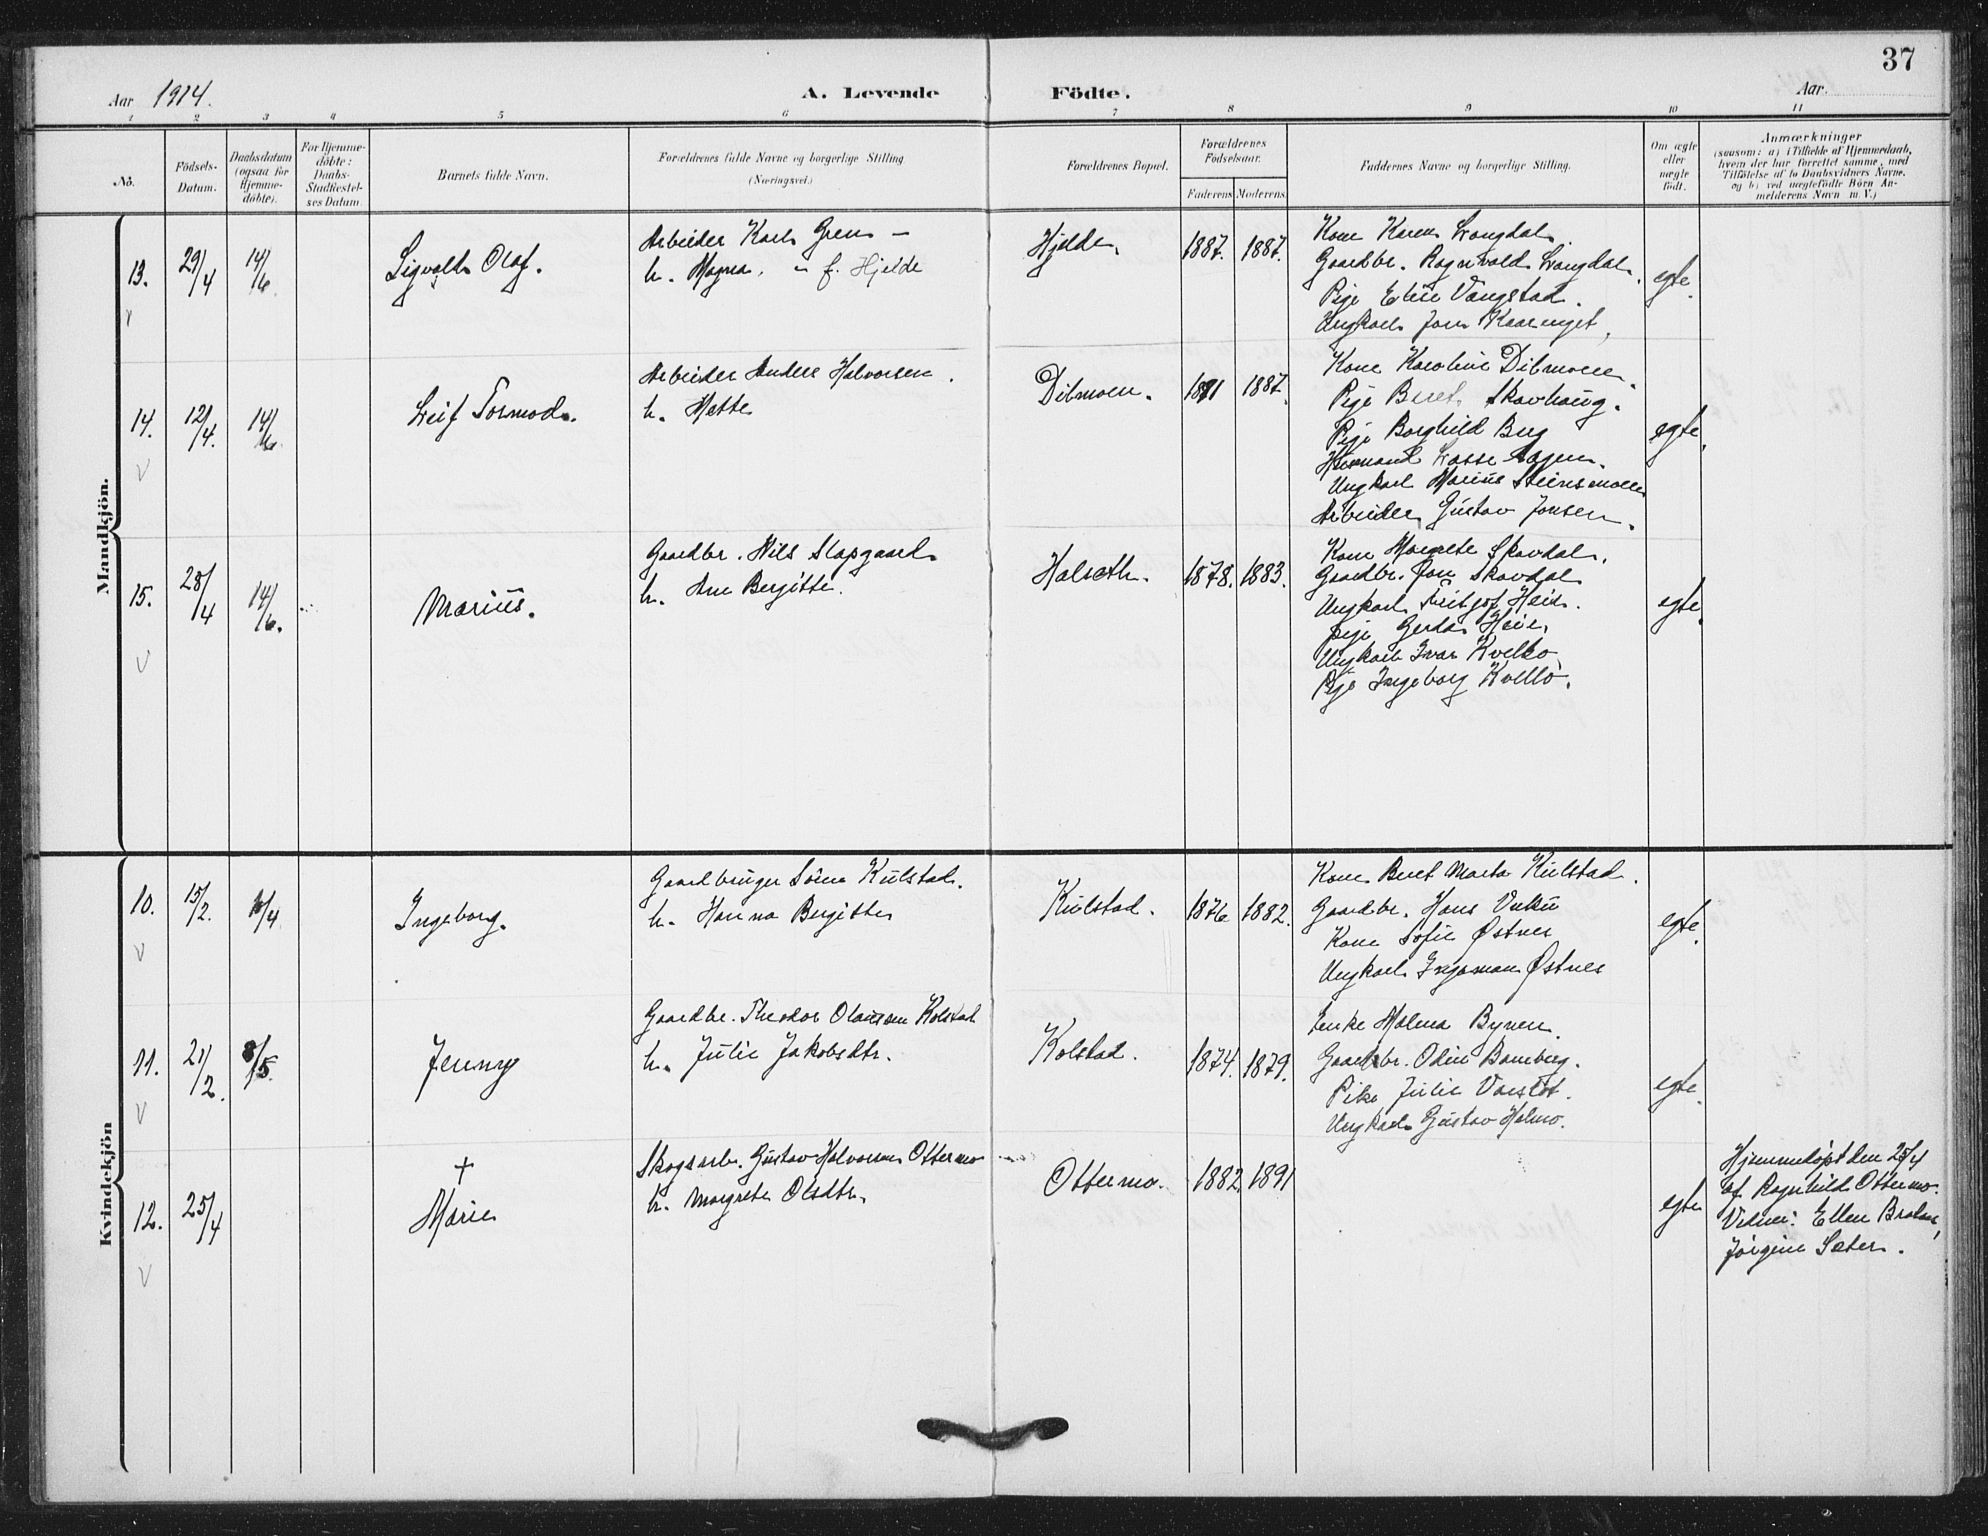 37
Aar 1914.
A. Levende Födte.
Aar.
1 2 3 4 5 6 7 8 9 10 11
No.
Födsels-Datum.
Daabsdatum (ogsaa for Hjemme-döbte).
For Hjemme-döbte: Daabs-Stadfæstel-ses Datum.
Barnets fulde Navn.
Forældrenes fulde Navne og borgerlige Stilling. (Næringsvei.)
Forældrenes Bopæl.
Forældrenes Födselsaar.
Faderens Moderens
Faddernes Navne og borgerlige Stilling.
Om ægte eller uægte födt.
Anmærkninger
(saasom: a) i Tilfælde af Hjemmedaab,
hvem der har forrettet samme, med
Tilföielse af to Daabsvidners Navne,
og b) ved uægtefödte Börn An-
melderens Navn m. V.)
Mandkjön.
13. 29/4 14/6 Sigvald Olaf.
Arbeider Karl Green —
h. Magna. " f. Hjelde
Hjelde 1887. 1887.
Kone Karen Longdal
Gaardbr. Ragnvald Longdal.
Pige Elin Vangstad.
Ungkarl Jon Kaarenget,
egte.
14. 12/4. 14/6 Leif Tormod.
Arbeider Anders Halvorsen.
h. Mette
Dilmoen. 1881 1887.
Kone Karoline Dilmoen.
Pige Beret Skavhaug.
Pige Borghild Berg
Lasse
Ungkarl Marius Steinsmoen
Arbeider Gustav Jonsen.
egte.
15. 28/4 14/6. Marius.
Gaardbr. Nils Slapgaard
h. Ane Bergitte.
Halseth. 1878. 1883.
Kone Margrete Skavdal.
Gaardbr. Jon Skavdal
Ungkarl Fritjof Heie.
Pige Gerda Heie.
Ungkarl Ivar Kvello
Pige Ingeborg Kvello.
egte.
Kvindekjön
10. 15/2. /4 Ingeborg.
Gaardbruger Sören Kulstad.
h. Hanna Bergitte
Kulstad. 1876 1882.
Kone Beret Marta Kulstad.
Gaardbr. Hans Vuku
Kone Sofie Østnes
Ungkarl Ingeman Østnes
egte.
11. 21/2. 3/5. Jenny
Gaardbr. Theodor Olausen Kolstad
h. Julie Jakobsdtr.
Kolstad. 1874. 1879.
Enke Malena Bynen.
Gaardbr. Odin Bamberg.
Pike Julie
Ungkarl Gustav Holmo.
egte.
12. 25/4 † Marie
Skogsarb. Gustav Halvorsen Ottermo
h. Margrete Olsdtr.
Ottermo. 1882. 1891
egte
Hjemmedøpt den 25/4
af Ragnhild Ottermo.
Vidner: Ellen
Jörgine Sæter.